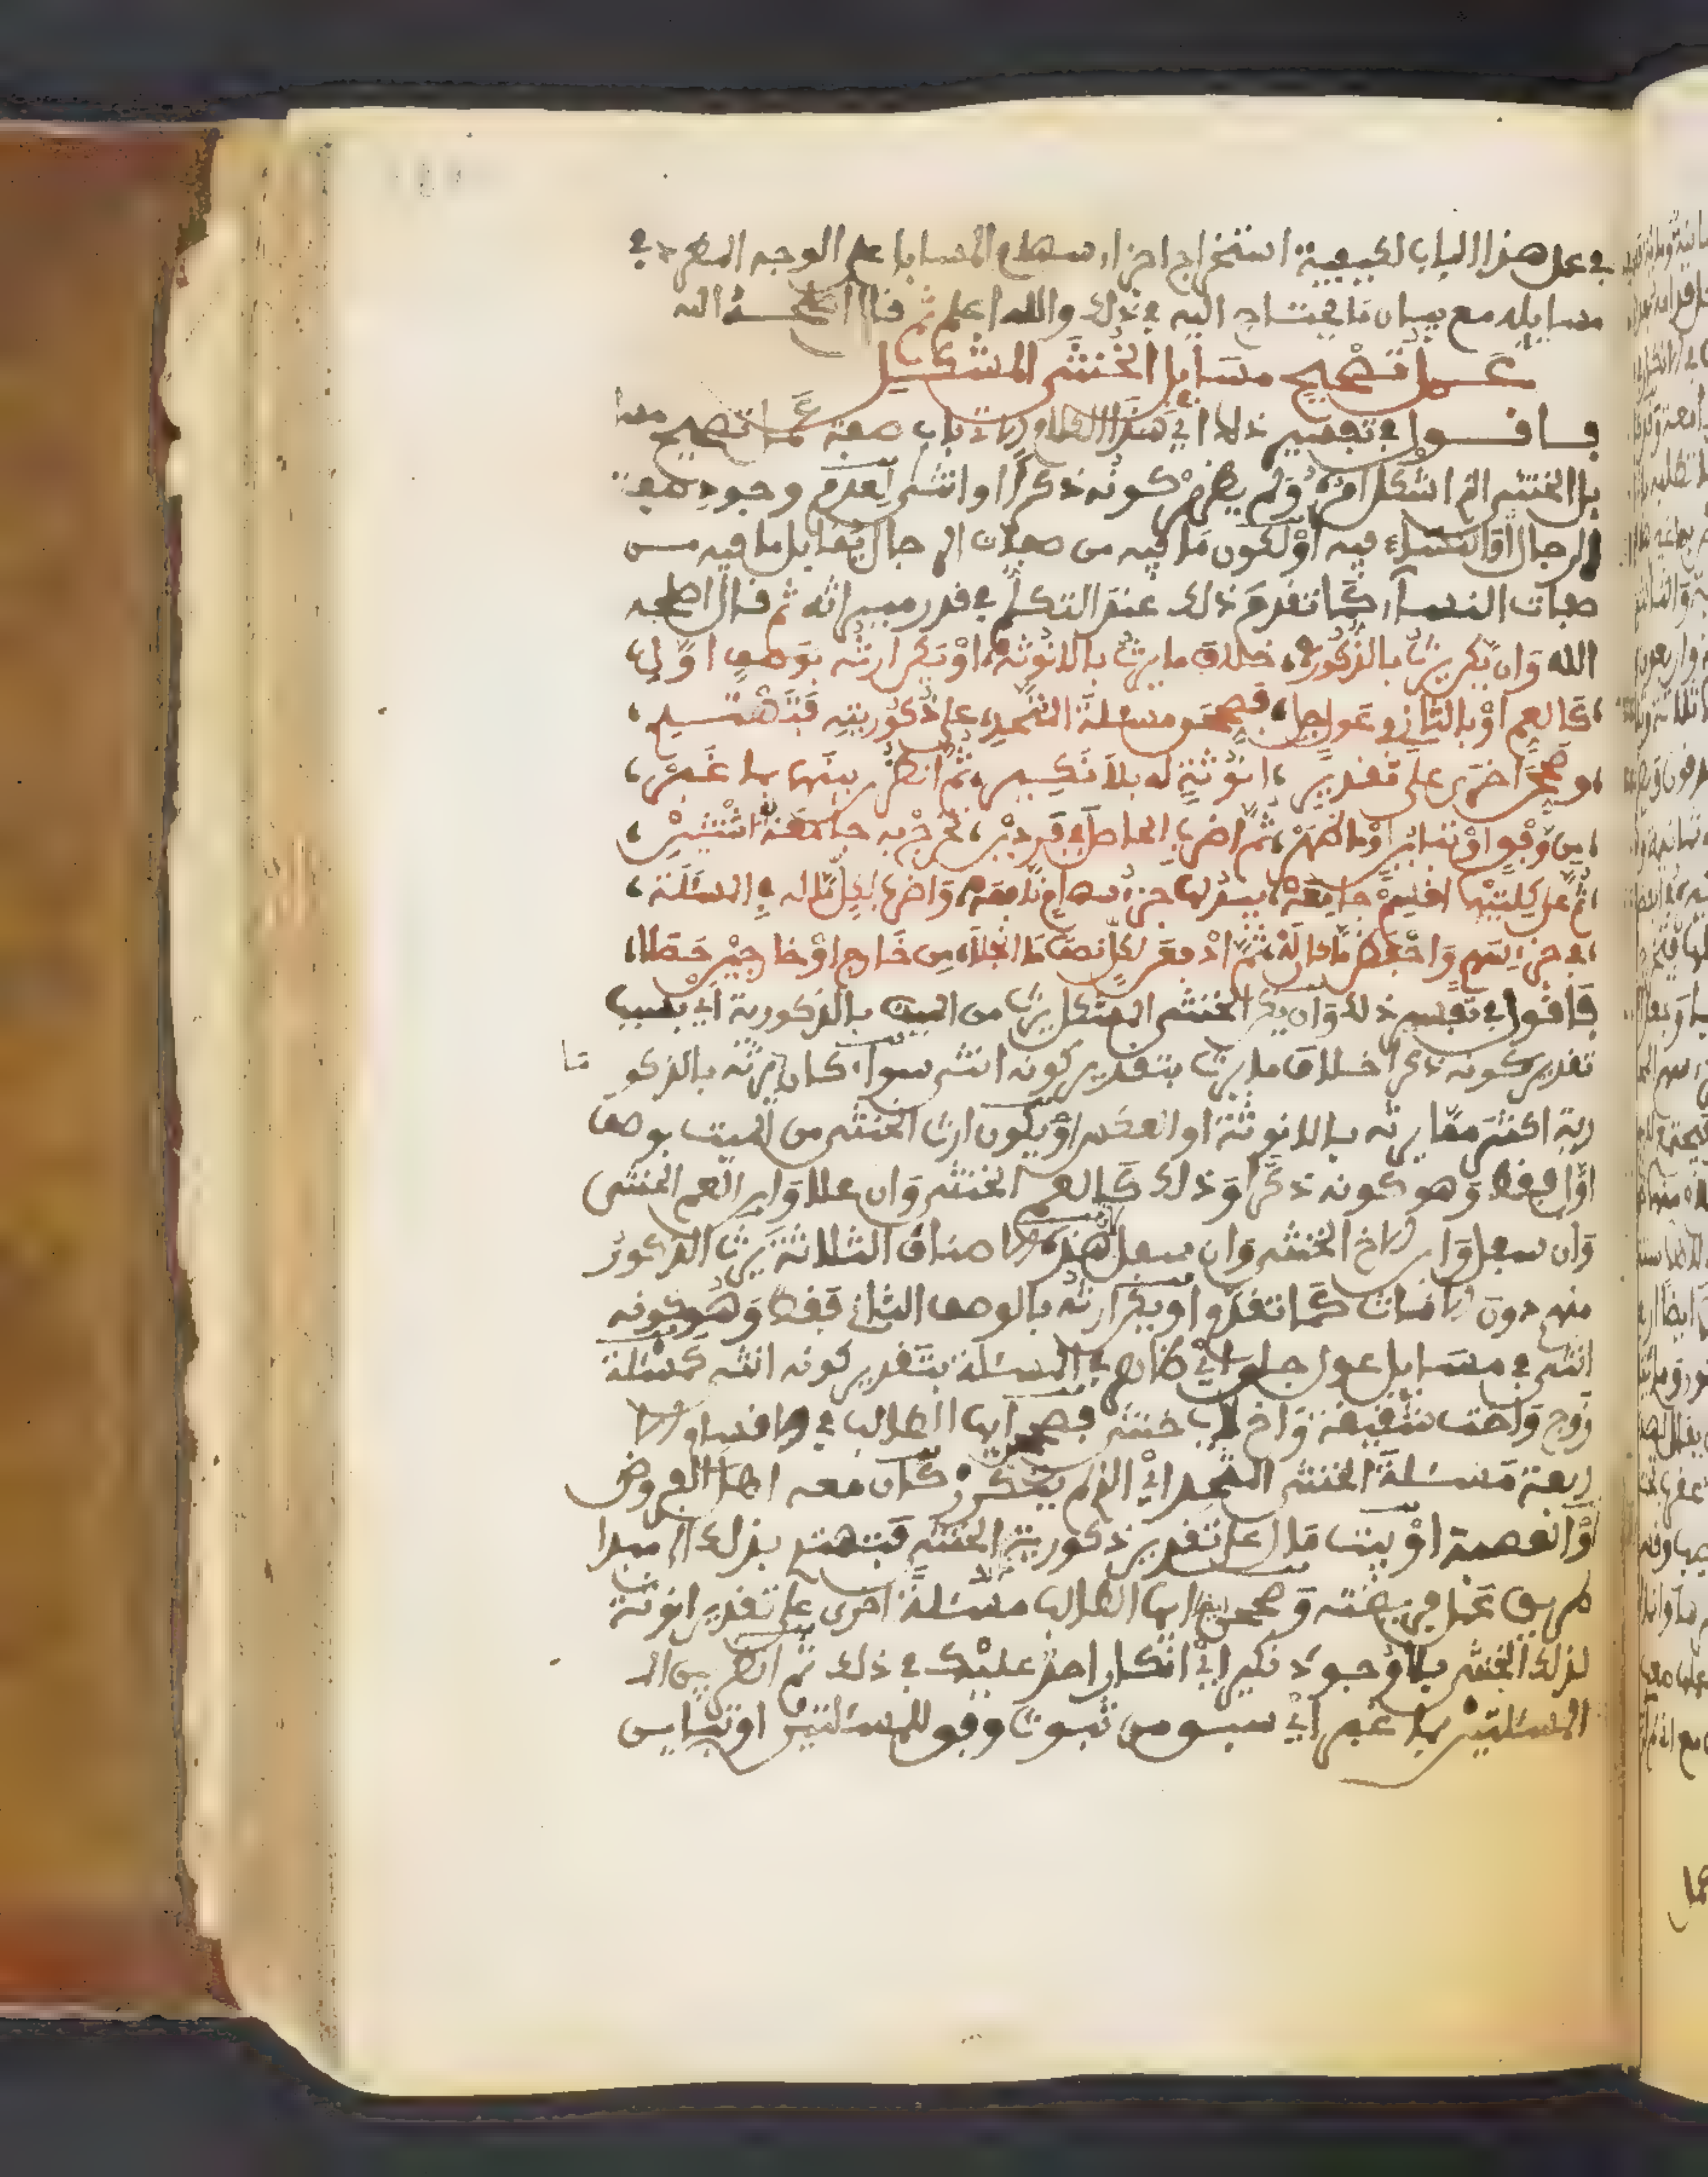 في عمل هذا الباب لكيفية استخراج اجزاء سهام المسايل على الوجه المطرد في
مسايله مع بيان ما يحتاج اليه في ذلك والله اعلم ثم قال رحمه الله
عمل تصحيح مسايل الخنثى المشكل
فاقول في تفسير ذلك اي هذا الكلام الاتي باب صفة عمل تصحيح مسا
يل الخنثى الذي اشكل امره ولم يظهر كونه ذكرا او انثى لعدم وجود صفة
الرجال او النساء فيه او لكون ما فيه من صفات الرجال يقابل ما فيه من
صفات النساء كما تقدم ذلك عند التكلم في قدر ميراثه ثم قال رحمه
الله وان يكن يرث بالذكورة خلاف ما يرث بالانوثة او يكن ارثه بوصف اول
كالعم او بالثاني في عول جل فصححن مسئلة المتحد على ذكوريته فتهتد
وصححن اخرى على تقدير انوثة له بلا نكير ثم انظرن بينهما بما غبر
من وفق او تباين او ما ظهر ثم اضرب الحاصل في فردين تخرج به جامعة اثنتين
ثم على كلتيهما اقسم جامعة يبدو لها جزء سهام نافعة واضرب لكل ما له في المسئلة
في جزء سهم واحفظن ما حاز له ثم ادفعن لكل نصف ما انجلا من خارج او خارجين حصلا
فاقول في تفسير ذلك وان يكن الخنثى المشكل يرث من الميت بالذكورية اي بسبب
تقدير كونه ذكرا خلاف ما يرث بتقدير كونه انثى سواء كان ما يرثه بالذكو
رية اكثر مما يرثه بالانوثة او العكس او يكون ارث الخنثى من الميت بوصف
اول فقط وهو كونه ذكرا وذلك كالعم الخنثى وان علا وابن العم الخنثى
وان سفل وابن الاخ الخنثى وان سفل هذه الاصناف الثلاثة يرث الذكور
منهم دون الاناث كما تقدم او يكن ارثه بالوصف الثاني فقط وهو كونه
انثى في مسايل عول جلي اي ظاهر في المسئلة بتقدير كونه انثى كمسئلة
زوج واخت شقيقة واخ لاب خنثى فصححن ايها الطالب في الاقسام الا
ربعة مسئلة الخنثى المتحد اي الذي لم يتكرر كان معه اهل الفروض
والعصبة او بيت مال على تقدير ذكورية الخنثى فتهتد بذلك الى مبدا
طريق عمل فريضته وصححن ايها الطالب مسئلة اخرى على تقدير انوثة
لذلك الخنثى بلا وجود نكير اي انكار احد عليك في ذلك ثم انظر بين الـ
المسئلتين بما غبر اي سبق من ثبوت وفق للمسئلتين او تباين